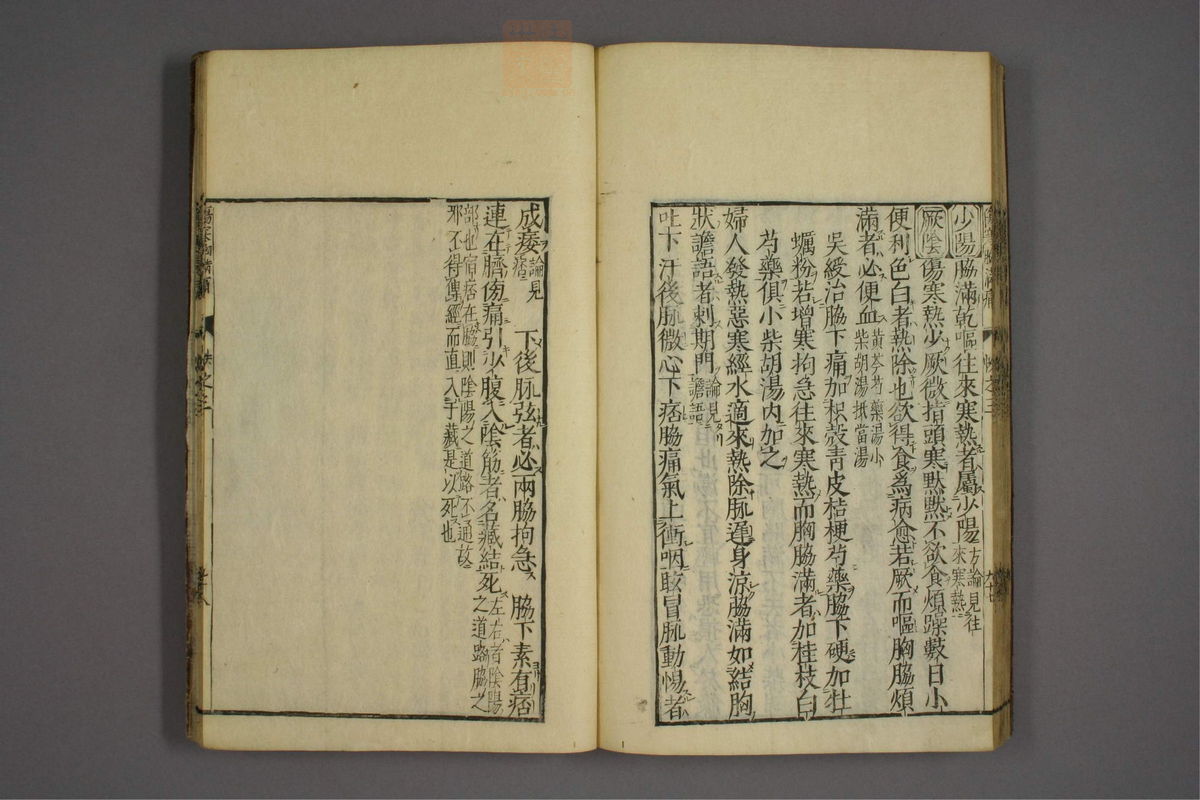 少陽脇滿乾嘔往來寒熱者屬少陽方論見往來寒熱
厥陰傷寒熱少厥微指頭寒默默不欲食煩躁數日小
便利色白者熱除也欲得食爲病愈若厥而嘔胸脇煩
滿者必便血黃芩芍藥湯小柴胡湯抵當湯
吳綬治脇下痛加枳殼青皮桔梗芍藥脇下硬加牡
蠣粉若增寒拘急往來寒熱而胸脇滿者加桂枝白
芍藥俱小柴胡湯內加之
婦人發熱惡寒經水適來熱除脉遲身涼脇滿如結胸
狀譫語者刺期門論見譫語
吐下汗後脉微心下痞脇痛氣上衝咽眩冒脉動惕者
成痿論見痞 下後脉弦者必兩脇拘急 脇下素有痞
連在臍傍痛引少腹入陰筋者名藏結死左右者陰陽之道路脇之
部也宿痞在脇則陰陽之道路不通故
邪不得傳經而直入于藏是以死也